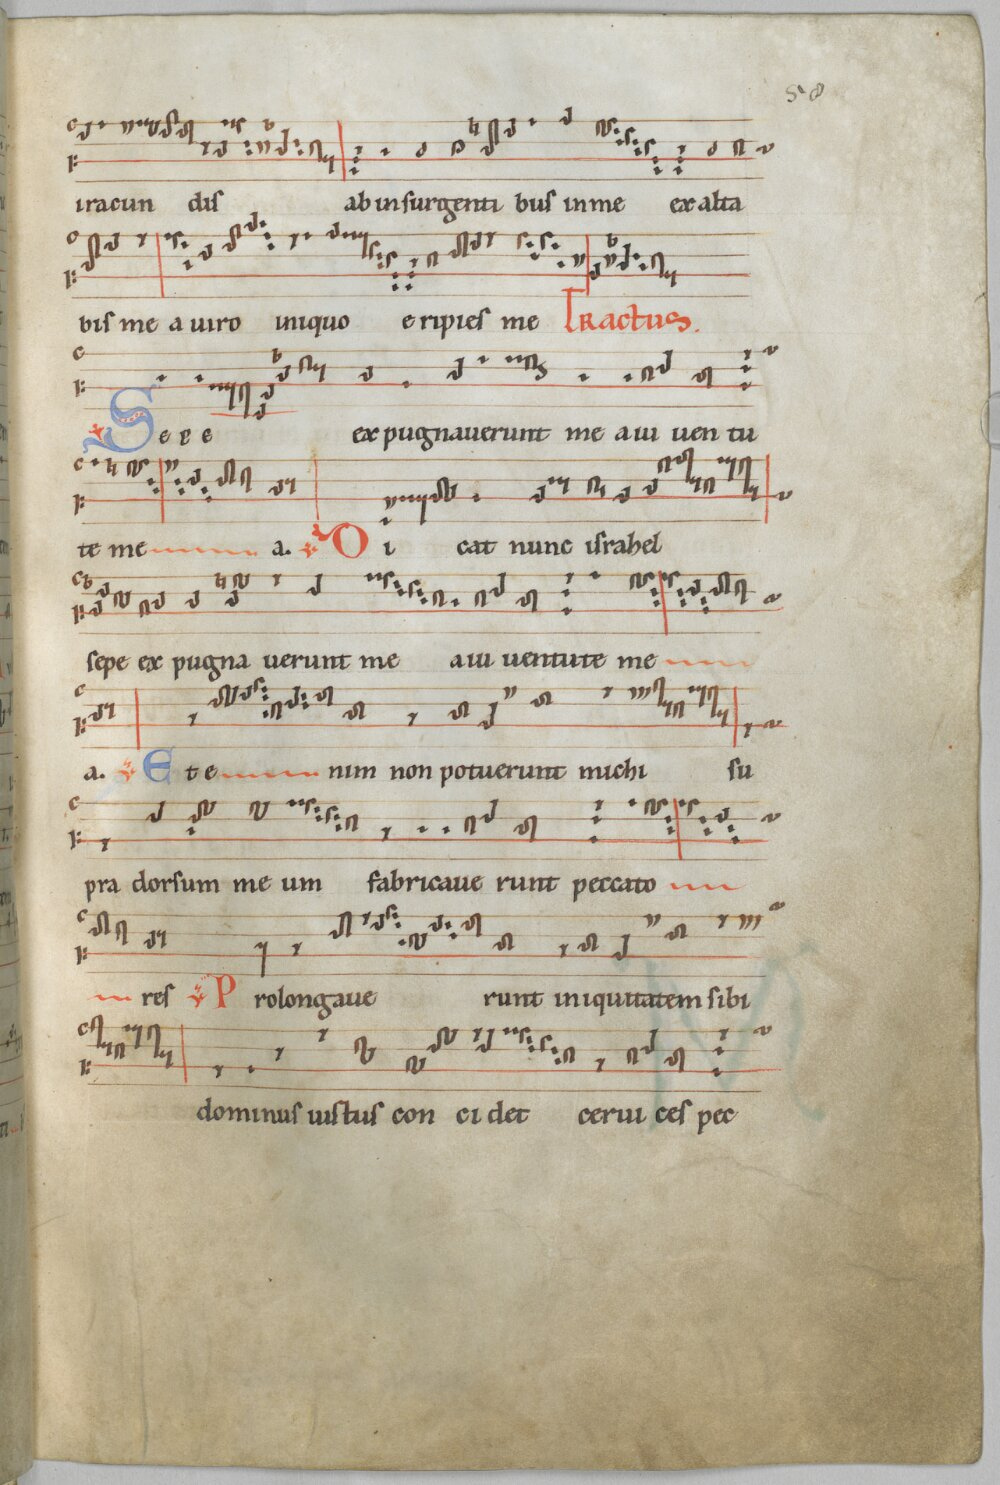 58
iracun dis ab insurgenti bus in me exalta
bis me a uiro iniquo eripies me Tractus.
Sepe expugnauerunt me a iu uen tu
te me a. Di cat nunc israhel
sepe ex pugna uerunt me a iu uentute me
a. Ete nim non potuerunt michi su
pra dorsum me um fabricaue runt peccato
res Prolongaue runt iniquitatem sibi
dominus iustus con ci det cerui ces pec